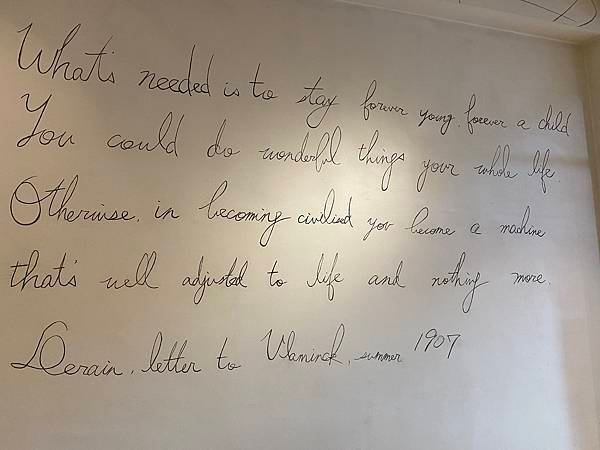 What's needed is to stay forever young, forever a child
You could do wonderful things your whole life.
Otherwise, in becoming civilized you become a machine
that's well adjusted to life and nothing more.
Derain, letter to Vlaminck, summer 1907